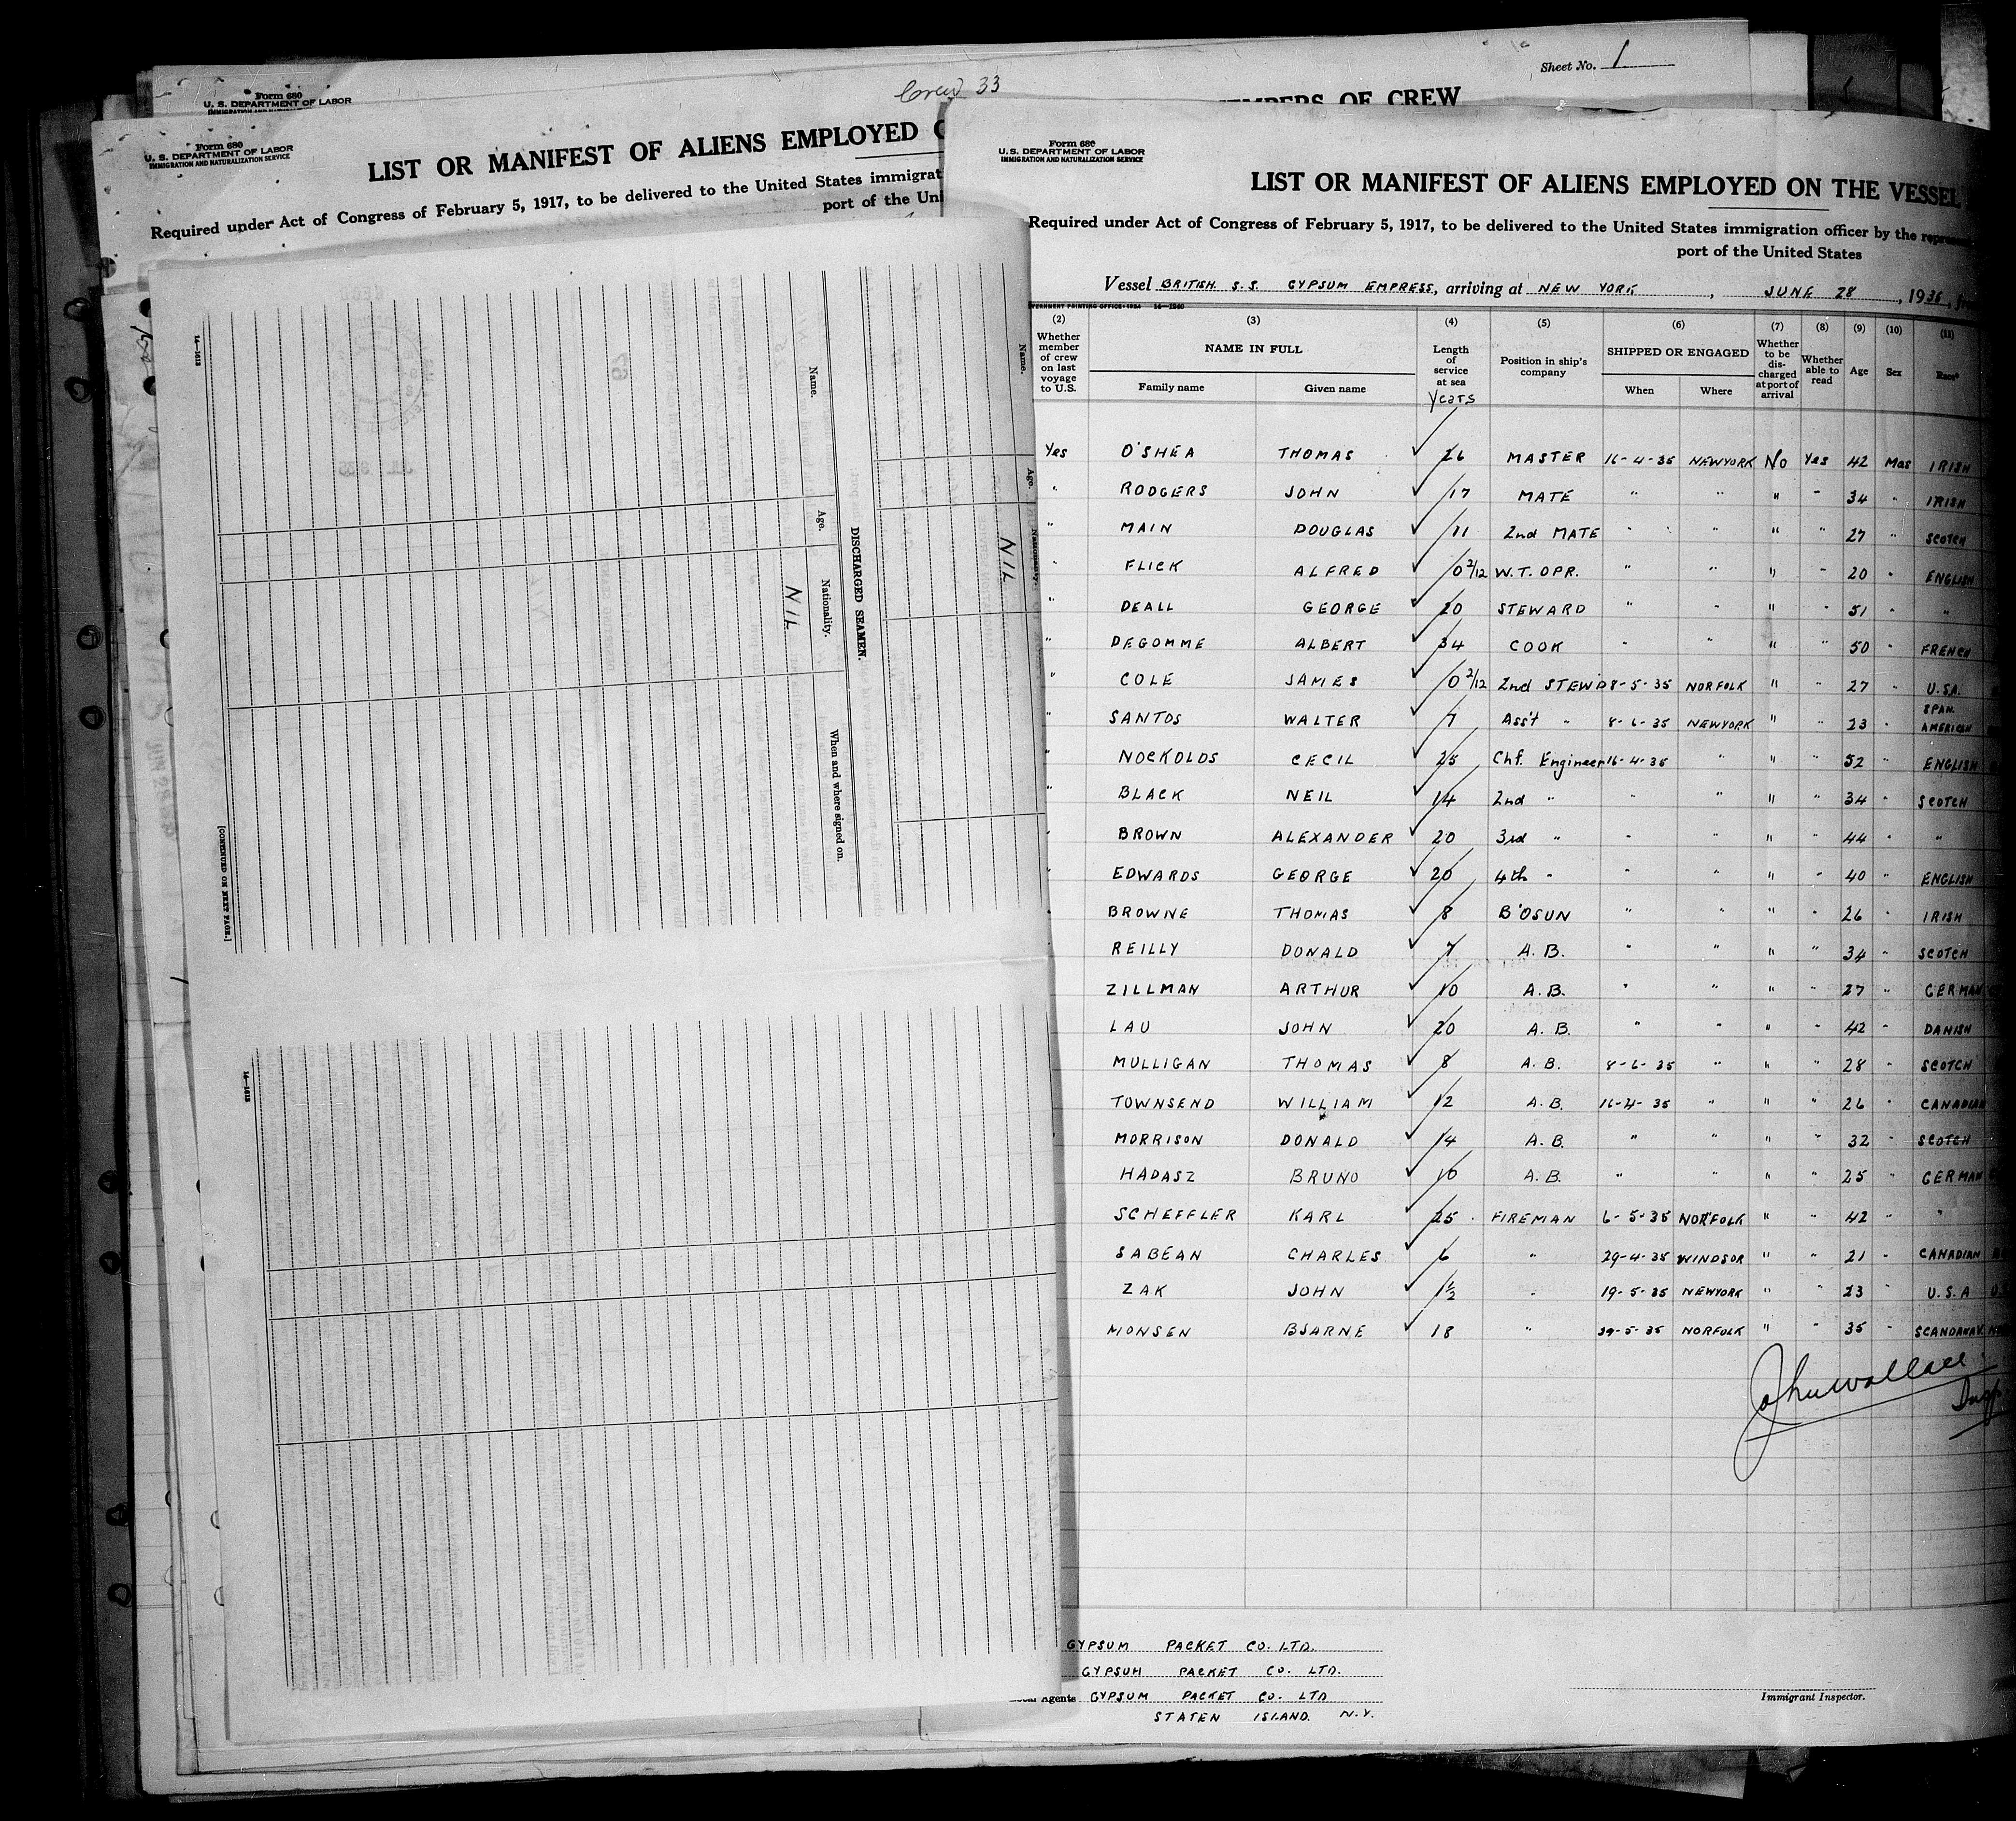 Sheet No. 1
Crew 33
Form 680
U. S. DEPARTMENT OF LABOR
MEMBERS OF CREW
Form 680
U. S. DEPARTMENT OF LABOR
IMMIGRATION AND NATURALIZATION SERVICE
LIST OR MANIFEST OF ALIENS EMPLOYED
Required under Act of Congress of February 5, 1917, to be delivered to the United States
port of the
Name.
Age.
Nationality.
NIL
DISCHARGED SEAMEN.
Name.
Age.
Nationality.
When and where signed on.
NIL
14—1613
[CONTINUED ON NEXT PAGE.]
14—1613
Form 680
U. S. DEPARTMENT OF LABOR
IMMIGRATION AND NATURALIZATION SERVICE
LIST OR MANIFEST OF ALIENS EMPLOYED ON THE VESSEL
Required under Act of Congress of February 5, 1917, to be delivered to the United States immigration officer by the
port of the United States
Vessel BRITISH S.S. GYPSUM EMPRESS, arriving at NEW YORK, JUNE 28, 1935,
(2) (3) (4) (5) (6) (7) (8) (9) (10) (11)
Whether member of crew on last voyage to U.S. NAME IN FULL Length of service at sea Position in ship's company SHIPPED OR ENGAGED Whether to be discharged at port of arrival Whether able to read Age Sex Race*
Family name Given name Years When Where
Yes O'SHEA THOMAS 26 MASTER 16-4-35 NEWYORK No Yes 42 Mas IRISH
" RODGERS JOHN 17 MATE " " " " 34 " IRISH
" MAIN DOUGLAS 11 2nd MATE " " " " 27 " SCOTCH
" FLICK ALFRED 0 2/12 W.T. OPR. " " " " 20 " ENGLISH
" DEALL GEORGE 20 STEWARD " " " " 51 " "
" DEGOMME ALBERT 34 COOK " " " " 50 " FRENCH
" COLE JAMES 0 2/12 2nd STEWD 8-5-35 NORFOLK " " 27 " U.S.A.
" SANTOS WALTER 7 Ass't " 8-6-35 NEWYORK " " 23 " SPAN. AMERICAN
" NOCKOLDS CECIL 25 Chf. Engineer 16-4-35 " " " 52 " ENGLISH
" BLACK NEIL 14 2nd " " " " " 34 " SCOTCH
" BROWN ALEXANDER 20 3rd " " " " " 44 " "
" EDWARDS GEORGE 20 4th " " " " " 40 " ENGLISH
BROWNE THOMAS 8 B'OSUN " " " " 26 " IRISH
REILLY DONALD 7 A.B. " " " " 34 " SCOTCH
ZILLMAN ARTHUR 10 A.B. " " " " 27 " GERMAN
LAU JOHN 20 A.B. " " " " 42 " DANISH
MULLIGAN THOMAS 8 A.B. 8-6-35 " " " 28 " SCOTCH
TOWNSEND WILLIAM 12 A.B. 16-4-35 " " " 26 " CANADIAN
MORRISON DONALD 14 A.B. " " " " 32 " SCOTCH
HADASZ BRUNO 10 A.B. " " " " 25 " GERMAN
SCHEFFLER KARL 25 FIREMAN 6-5-35 NORFOLK " " 42 " "
SABEAN CHARLES 6 " 29-4-35 WINDSOR " " 21 " CANADIAN
ZAK JOHN 1½ " 19-5-35 NEWYORK " " 23 " U.S.A
MONSEN BJARNE 18 " 29-5-35 NORFOLK " " 35 " SCANDANAV.
John Wallace
GYPSUM PACKET CO. LTD.
GYPSUM PACKET CO. LTD.
Agents GYPSUM PACKET CO. LTD
STATEN ISLAND. N.Y.
Immigrant Inspector.